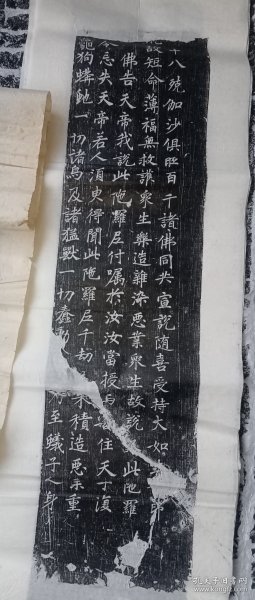 十八殑伽沙俱胝百千諸佛同共宣說隨喜受持大如
故短命薄福無救護衆生樂造雜染惡業衆生故說
此陁羅
佛告天帝我說此陁羅尼付囑於汝汝當授与
住天子復
令忘失天帝若人須臾得聞此陁羅尼千劫
來積造惡業重
龜狗蟒虵一切諸鳥及諸猛獸一切蠢動
至蟻子之身
孔夫子旧书网